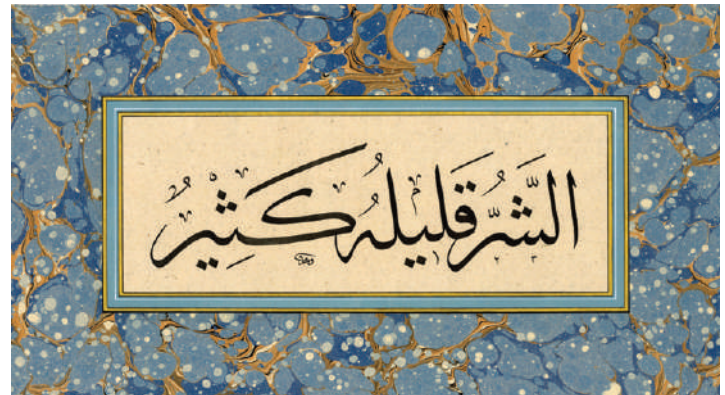 الشَّرُّ قَلِيلُهُ كَثِيرٌ